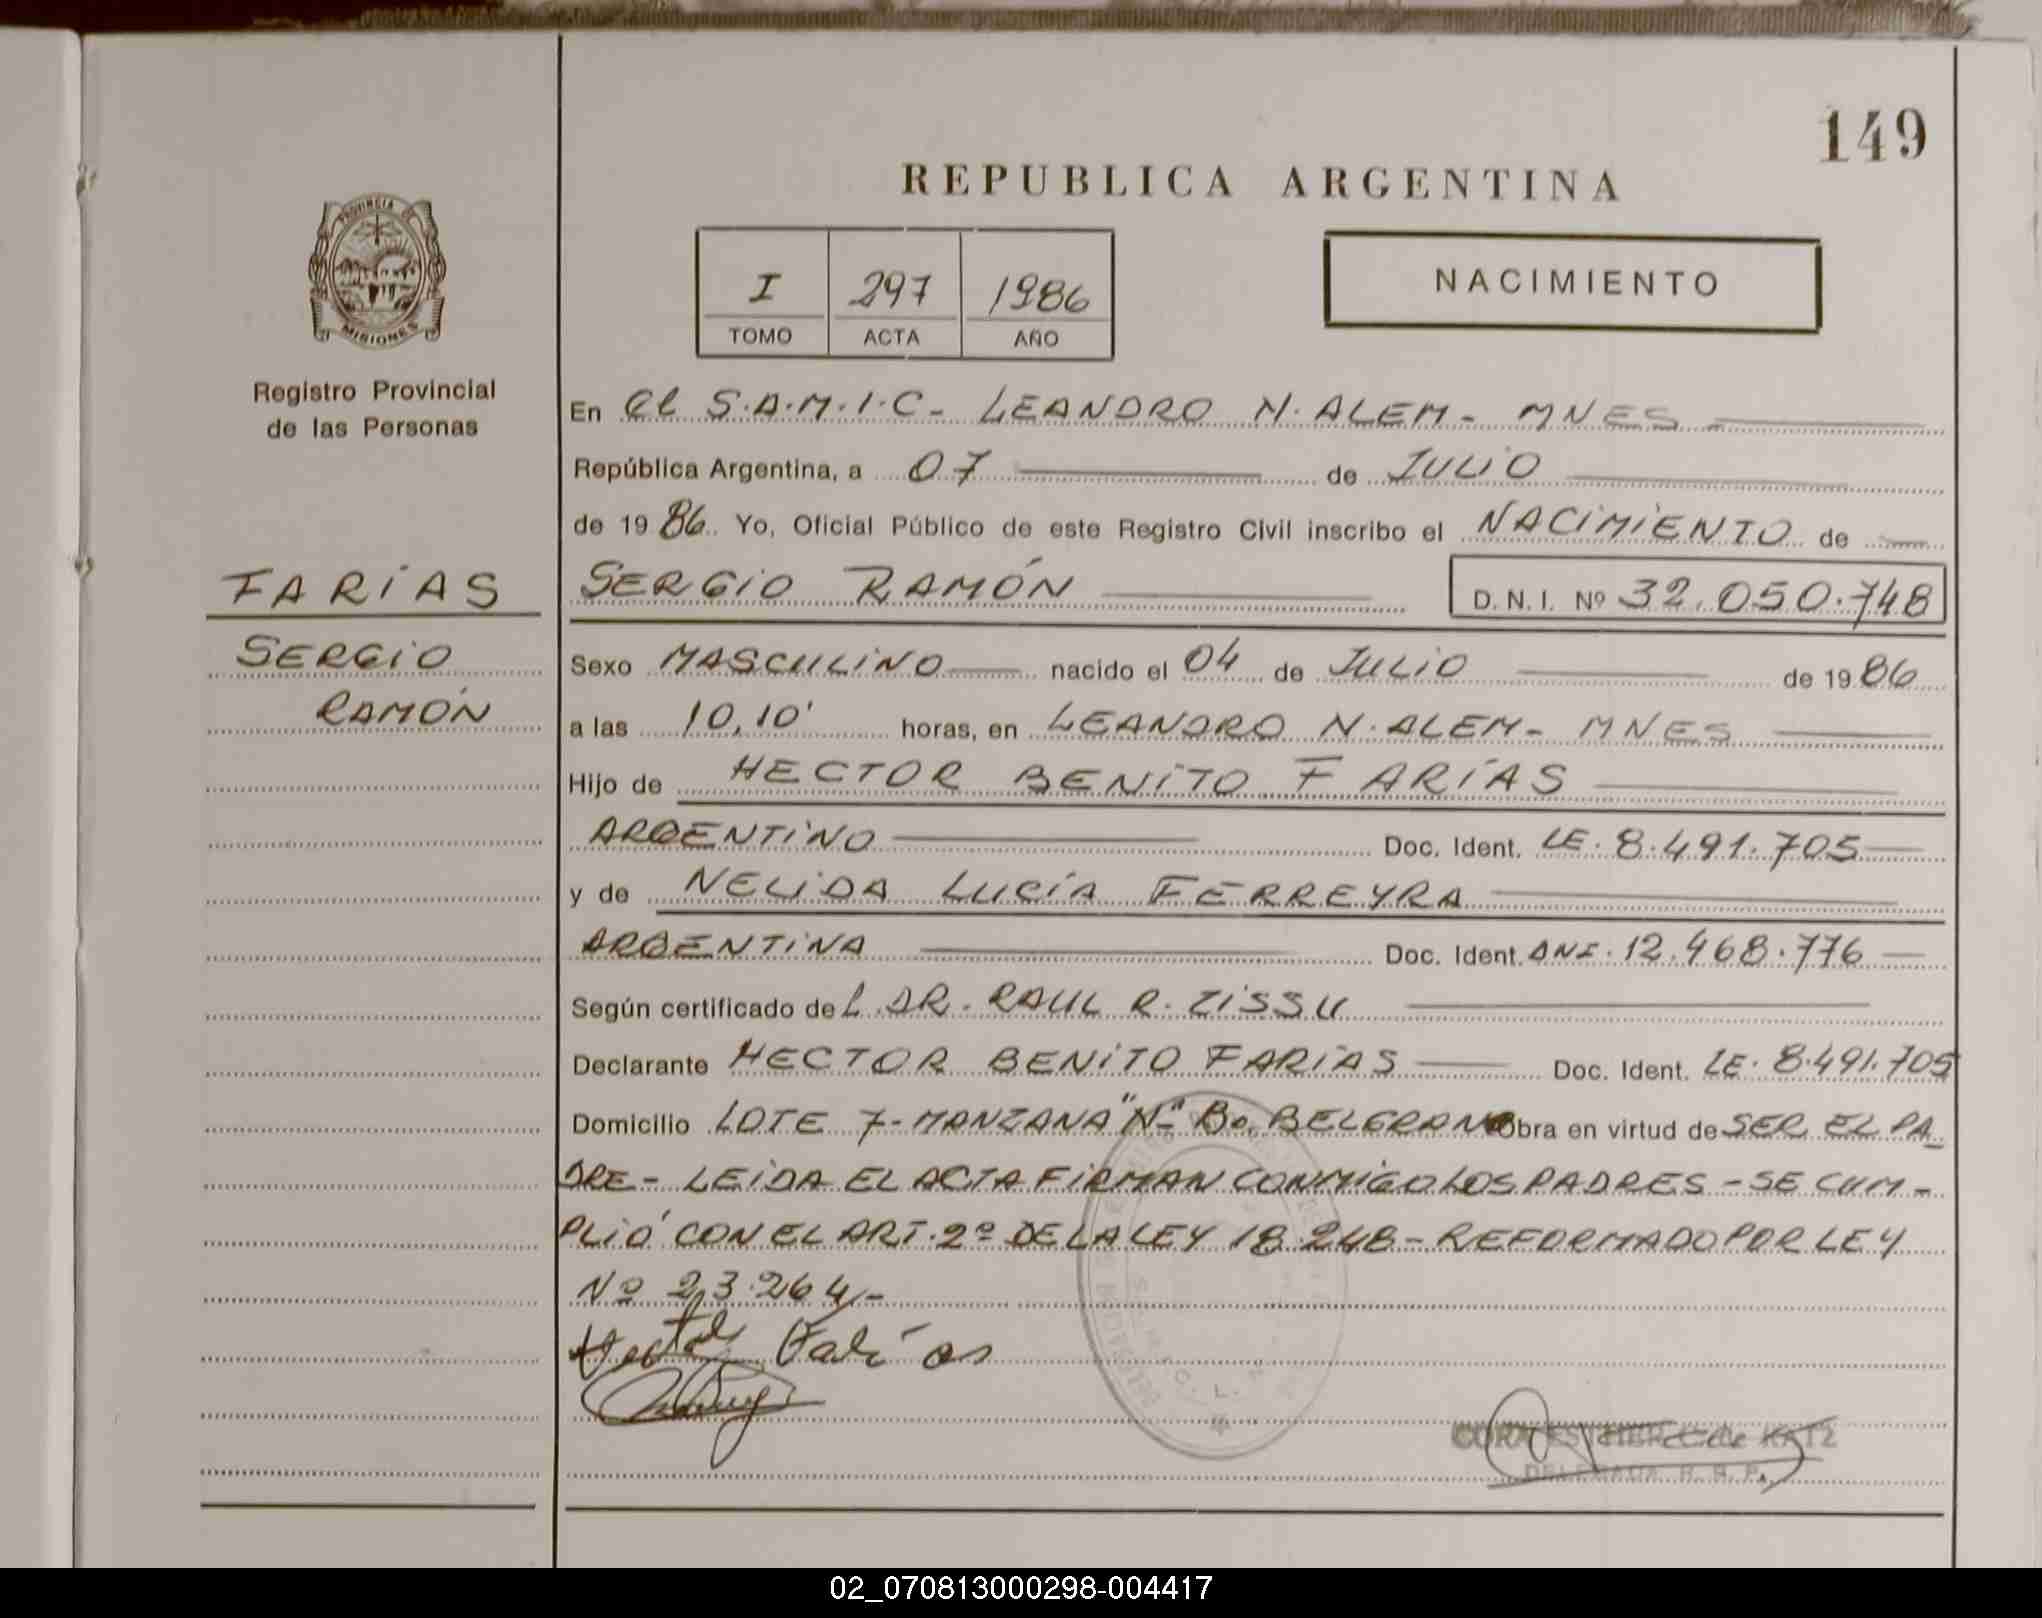 149
REPUBLICA ARGENTINA
PROVINCIA DE
MISIONES
I 297 1986
TOMO ACTA AÑO
NACIMIENTO
Registro Provincial
de las Personas
En el S.A.M.I.C- LEANDRO N. ALEM - MNES -
República Argentina, a 07 de JULIO
de 1986. Yo, Oficial Público de este Registro Civil inscribo el NACIMIENTO de
FARÍAS
SERGIO RAMÓN D.N.I. Nº 32.050.748
SERGIO
RAMÓN
Sexo MASCULINO nacido el 04 de JULIO de 1986
a las 10,10' horas, en LEANDRO N. ALEM - MNES
Hijo de HECTOR BENITO FARÍAS
ARGENTINO Doc. Ident. LE. 8.491.705
y de NELIDA LUCÍA FERREYRA
ARGENTINA Doc. Ident. DNI. 12.468.776
Según certificado del DR. RAUL R. ZISSU
Declarante HECTOR BENITO FARÍAS Doc. Ident. LE. 8.491.705
Domicilio LOTE 7- MANZANA "N" Bo. BELGRANO Obra en virtud de SER EL PA-
DRE - LEIDA EL ACTA FIRMAN CONMIGO LOS PADRES - SE CUM-
PLIÓ CON EL ART. 2º DE LA LEY 18.248 - REFORMADO POR LEY
Nº 23.264 -
Hector Farías
CORA ESTHER C. de KATZ
DELEGADA R. R. P.
02_070813000298-004417